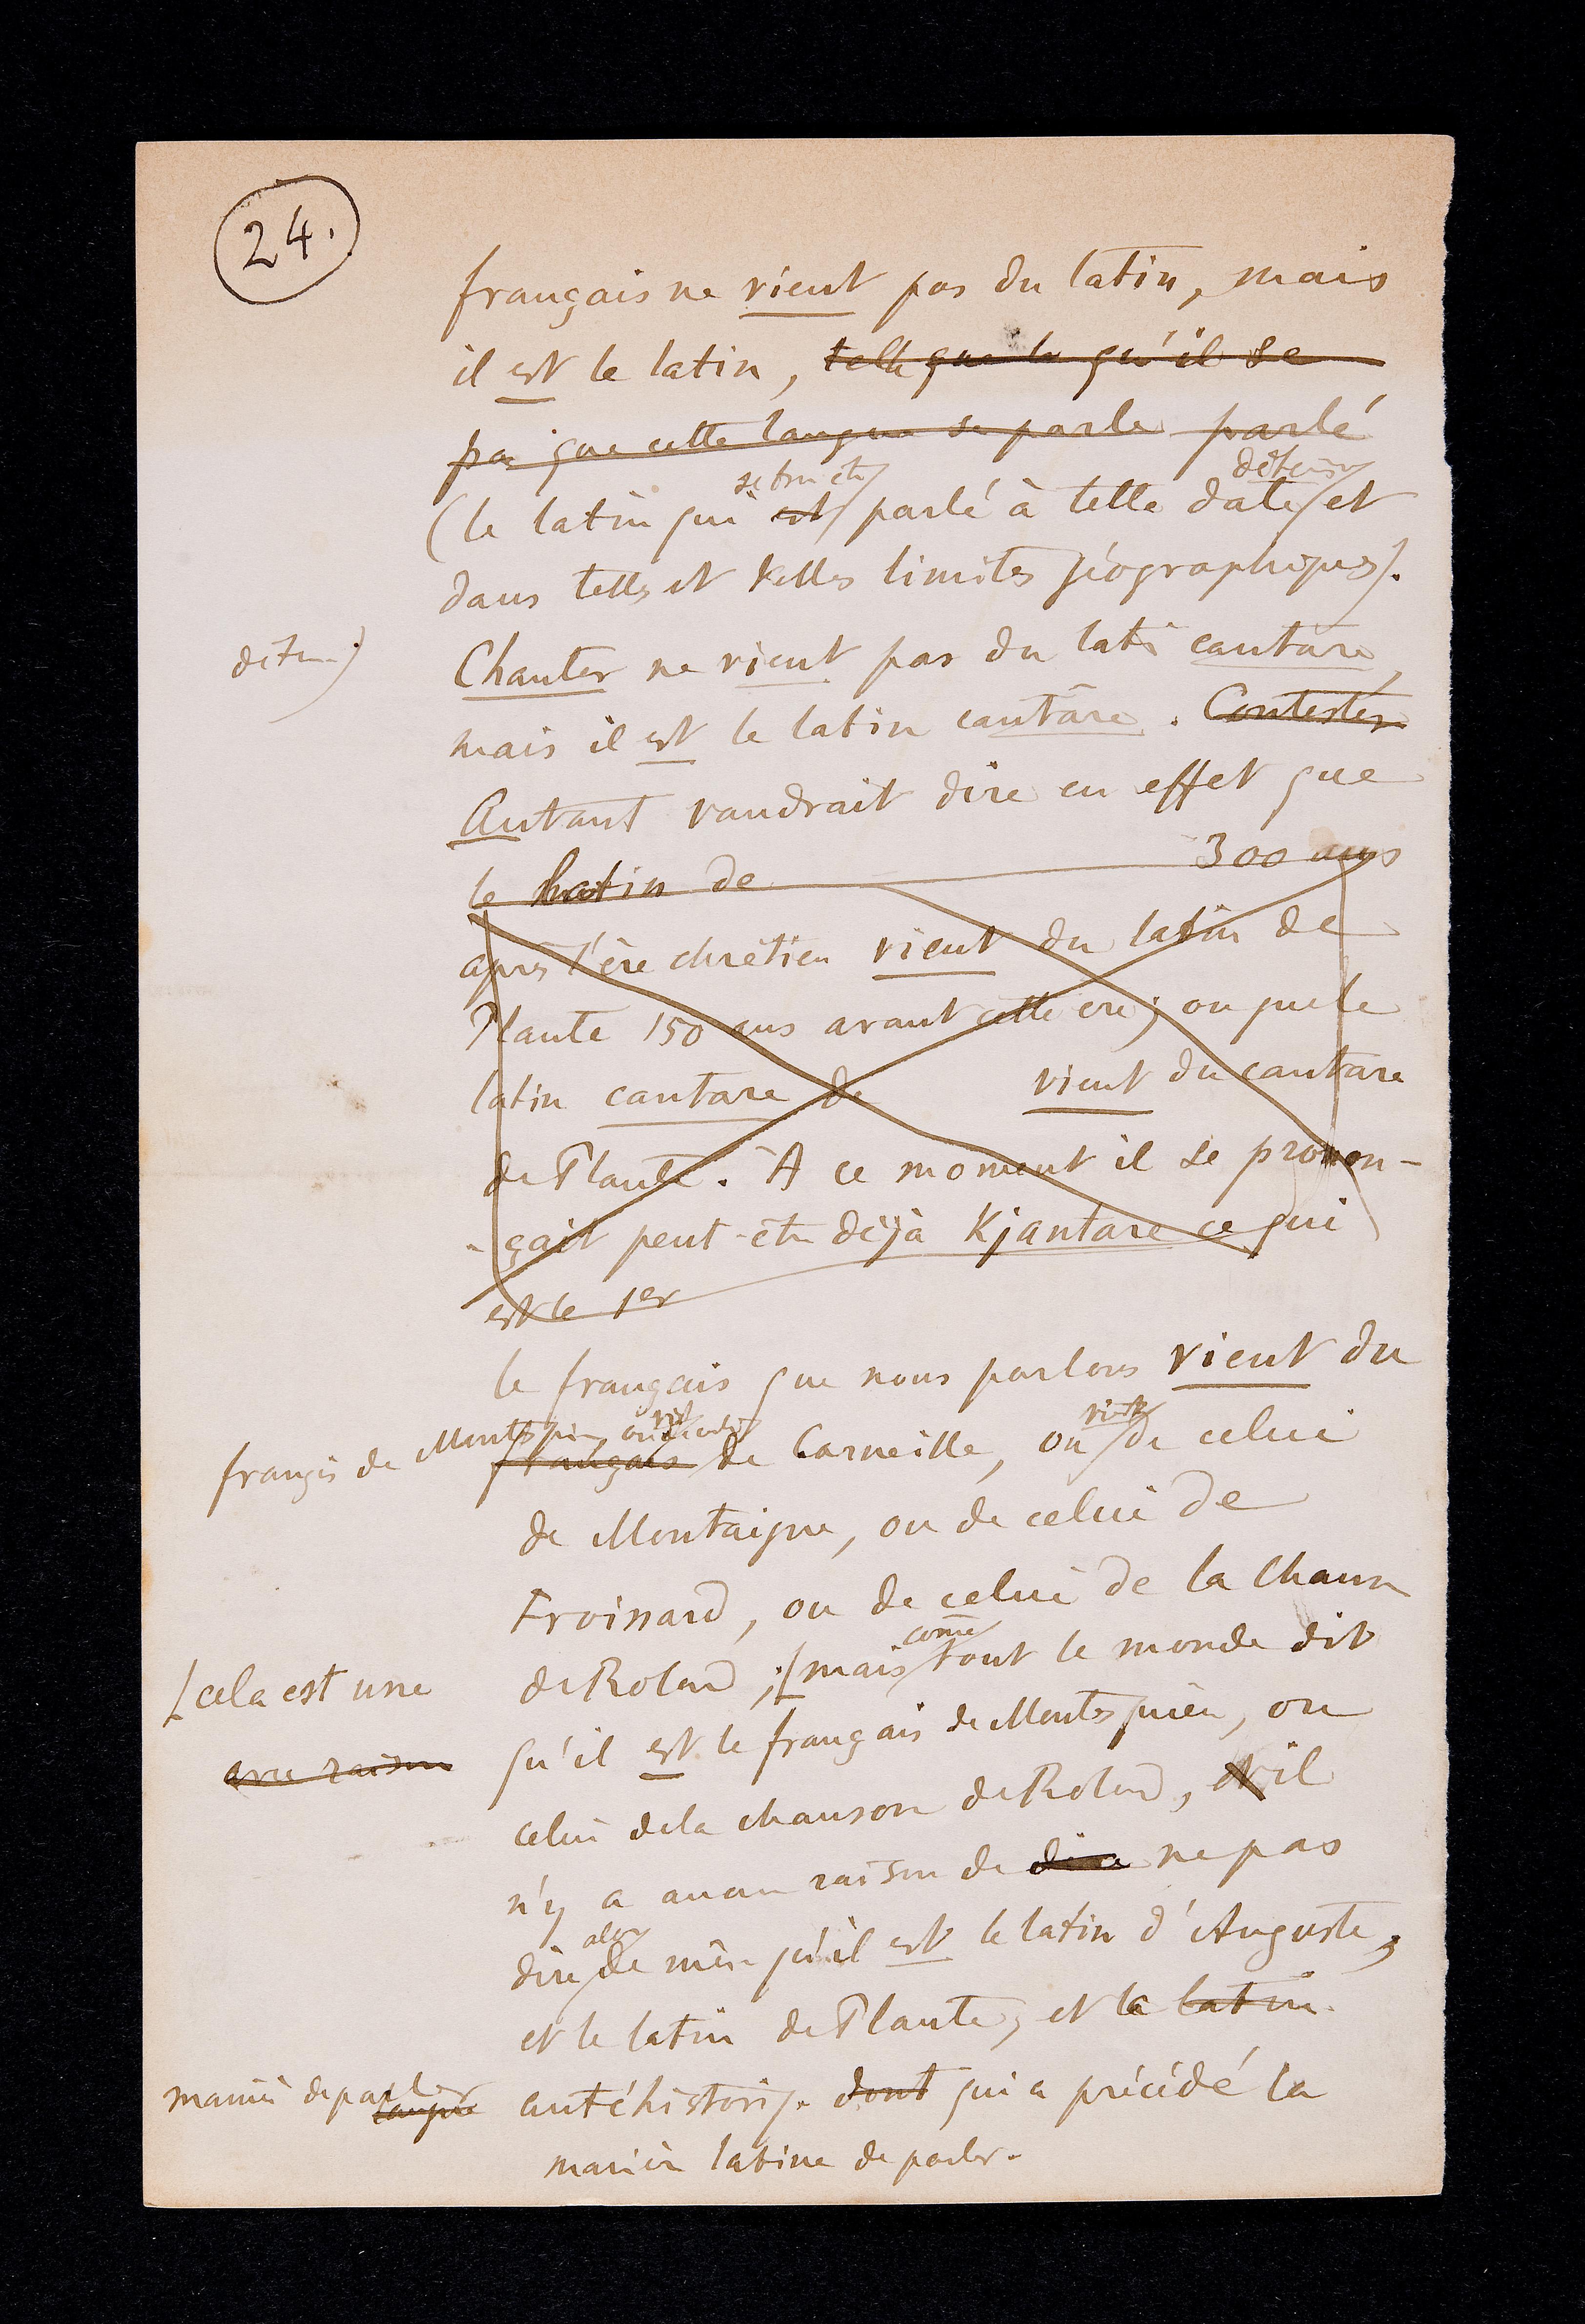 24.
français ne vient pas du latin, mais
il est le latin, telle que le qu'il se
par que cette langue se parle parlé
se trou être déterm
(le latin qui est parlé à telle date et
dans telles et telles limites géographiques).
déterm)
Chanter ne vient pas du lati cantare,
mais il est le latin cantāre. Contester
Autant vaudrait dire en effet que
le latin de 300 ans
après l'ère chrétien vient du latin de
Plaute 150 ans avant cette ère; ou que le
latin cantare de vient du cantare
de Plaute. A ce moment il se pronon-
-çait peut-être déjà Kjantare ce qui
est le 1er
le français que nous parlons vient du
françis de Montesquieu, ou vient
français de Corneille, ou de celui
de Montaigne, ou de celui de
Froissard, ou de celui de la Chanson
come
de Roland; [mais tout le monde dit
[cela est une
qu'il est le français de Montesquieu, ou
avec raison
celui de la chanson de Roland, et il
n'y a aucune raison de dire ne pas
alors
dire de même qu'il est le latin d'Auguste,
et le latin de Plaute, et le latin
manièr de parler langue
antéhistoriq. dont qui a précédé la
manièr latine de parler.